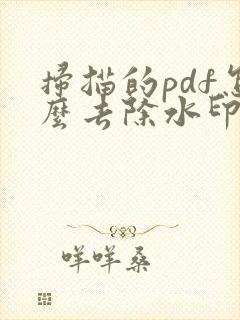 掃描的pdf怎
麼去除水印
咩咩桑